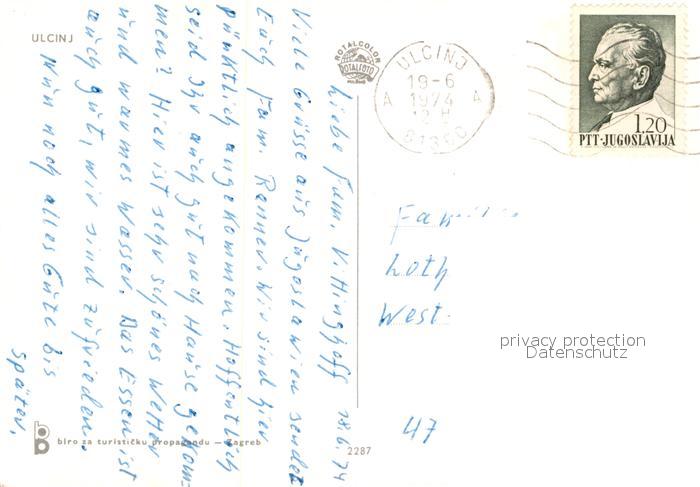 ULCINJ
ROTALCOLOR
ROTALFOTO
ULCINJ
19-6
1974
12 H
A A
81360
1.20
PTT-JUGOSLAVIJA
Liebe Fam. Vittinghoff 18.6.74
Viele Grüsse aus Jugoslawien sendet
Euch Fam. Renner. Wir sind hier
pünktlich angekommen. Hoffentlich
seid Ihr auch gut nach Hause gekom=
men? Hier ist sehr schönes Wetter
und warmes Wasser. Das Essen ist
auch gut, wir sind zufrieden.
Nun noch alles Gute bis
später.
Loth
West
47
privacy protection
Datenschutz
biro za turističku propagandu — Zagreb
2287